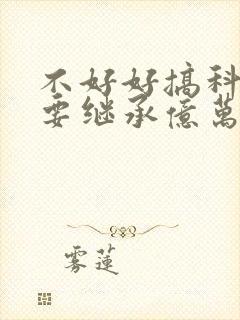 不好好搞科
要继承億萬
雾莲